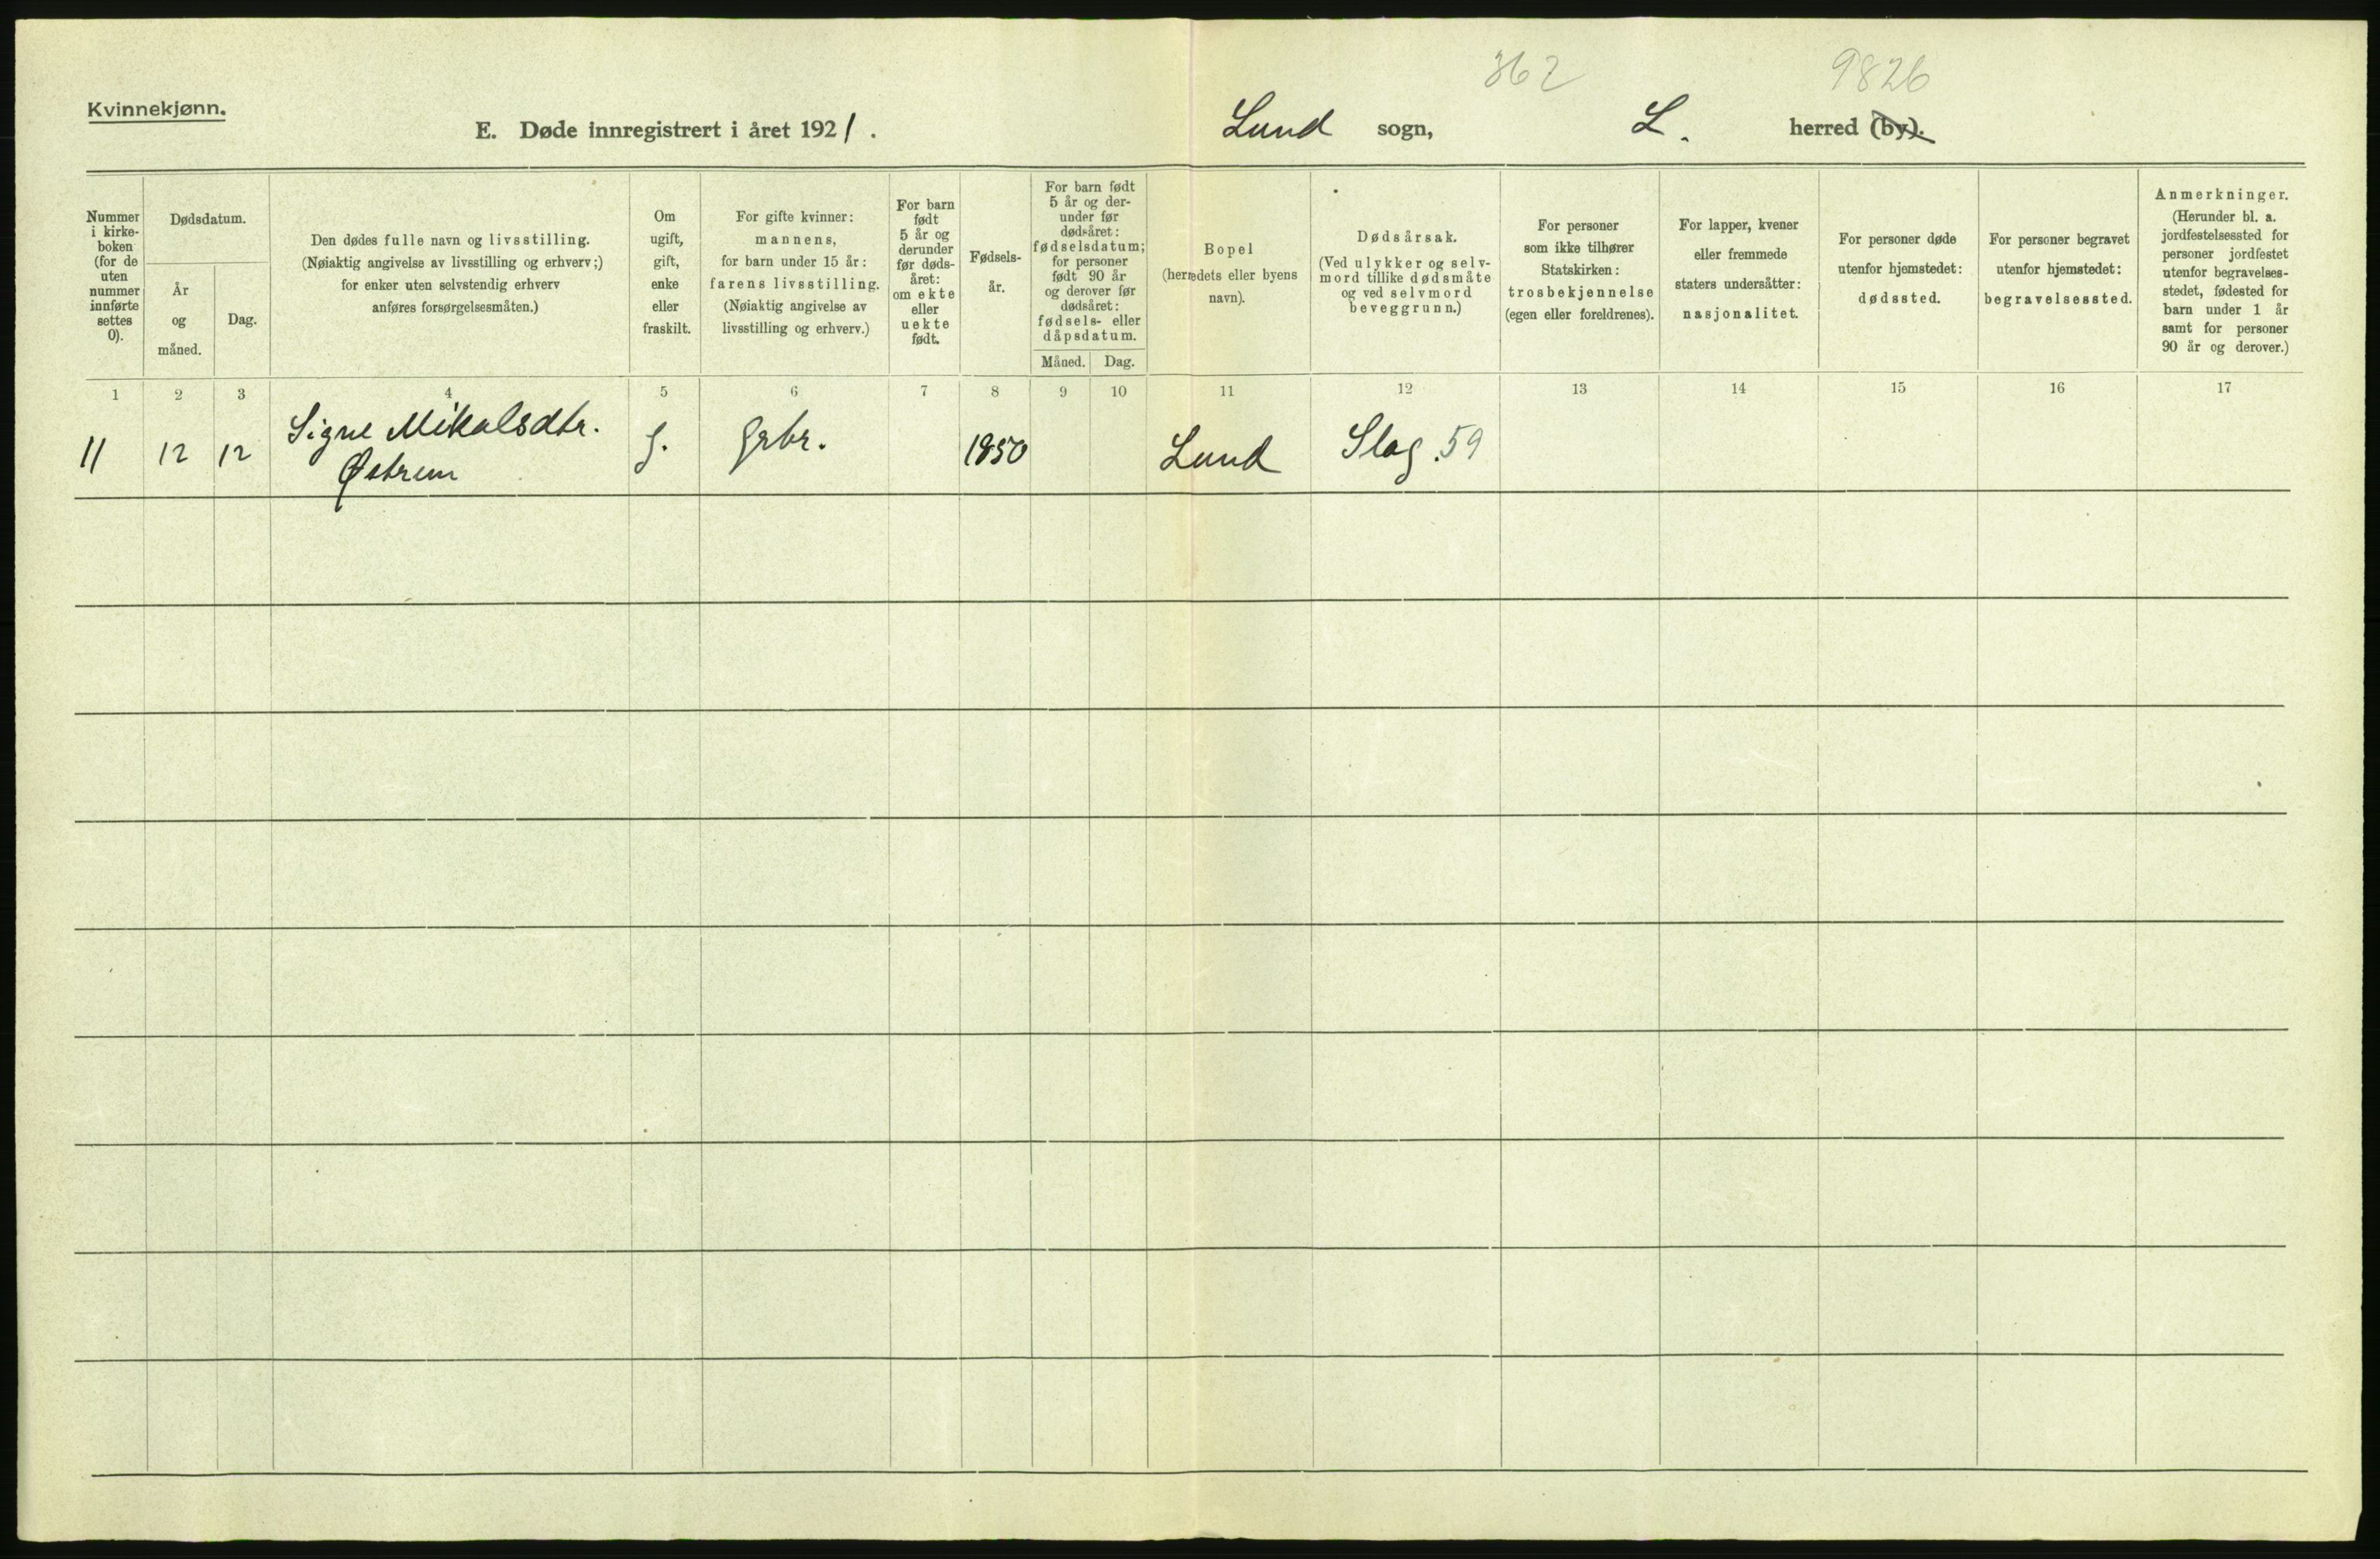 362
9826
Kvinnekjønn.
E. Døde innregistrert i året 1921.
Lund sogn, L. herred (by).
Nummer
i kirke-
boken
(for de
uten
nummer
innførte
settes
0).
Dødsdatum.
År
og
måned.
Dag.
Den dødes fulle navn og livsstilling.
(Nøiaktig angivelse av livsstilling og erhverv;)
for enker uten selvstendig erhverv
anføres forsørgelsesmåten.)
Om
ugift,
gift,
enke
eller
fraskilt.
For gifte kvinner:
mannens,
for barn under 15 år:
farens livsstilling.
(Nøiaktig angivelse av
livsstilling og erhverv.)
For barn
født
5 år og
derunder
før døds-
året:
om ekte
eller
uekte
født.
Fødsels-
år.
For barn født
5 år og der-
under før
dødsåret:
fødselsdatum;
for personer
født 90 år
og derover før
dødsåret:
fødsels- eller
dåpsdatum.
Måned. Dag.
Bopel
(herredets eller byens
navn).
Dødsårsak.
(Ved ulykker og selv-
mord tillike dødsmåte
og ved selvmord
beveggrunn.)
For personer
som ikke tilhører
Statskirken:
trosbekjennelse
(egen eller foreldrenes).
For lapper, kvener
eller fremmede
staters undersåtter:
nasjonalitet.
For personer døde
utenfor hjemstedet:
dødssted.
For personer begravet
utenfor hjemstedet:
begravelsessted.
Anmerkninger.
(Herunder bl. a.
jordfestelsessted for
personer jordfestet
utenfor begravelses-
stedet, fødested for
barn under 1 år
samt for personer
90 år og derover.)
1 2 3 4 5 6 7 8 9 10 11 12 13 14 15 16 17
11 12 12 Signe Mikalsdtr. g. grbr. 1850 Lund Slag. 59
Østrem